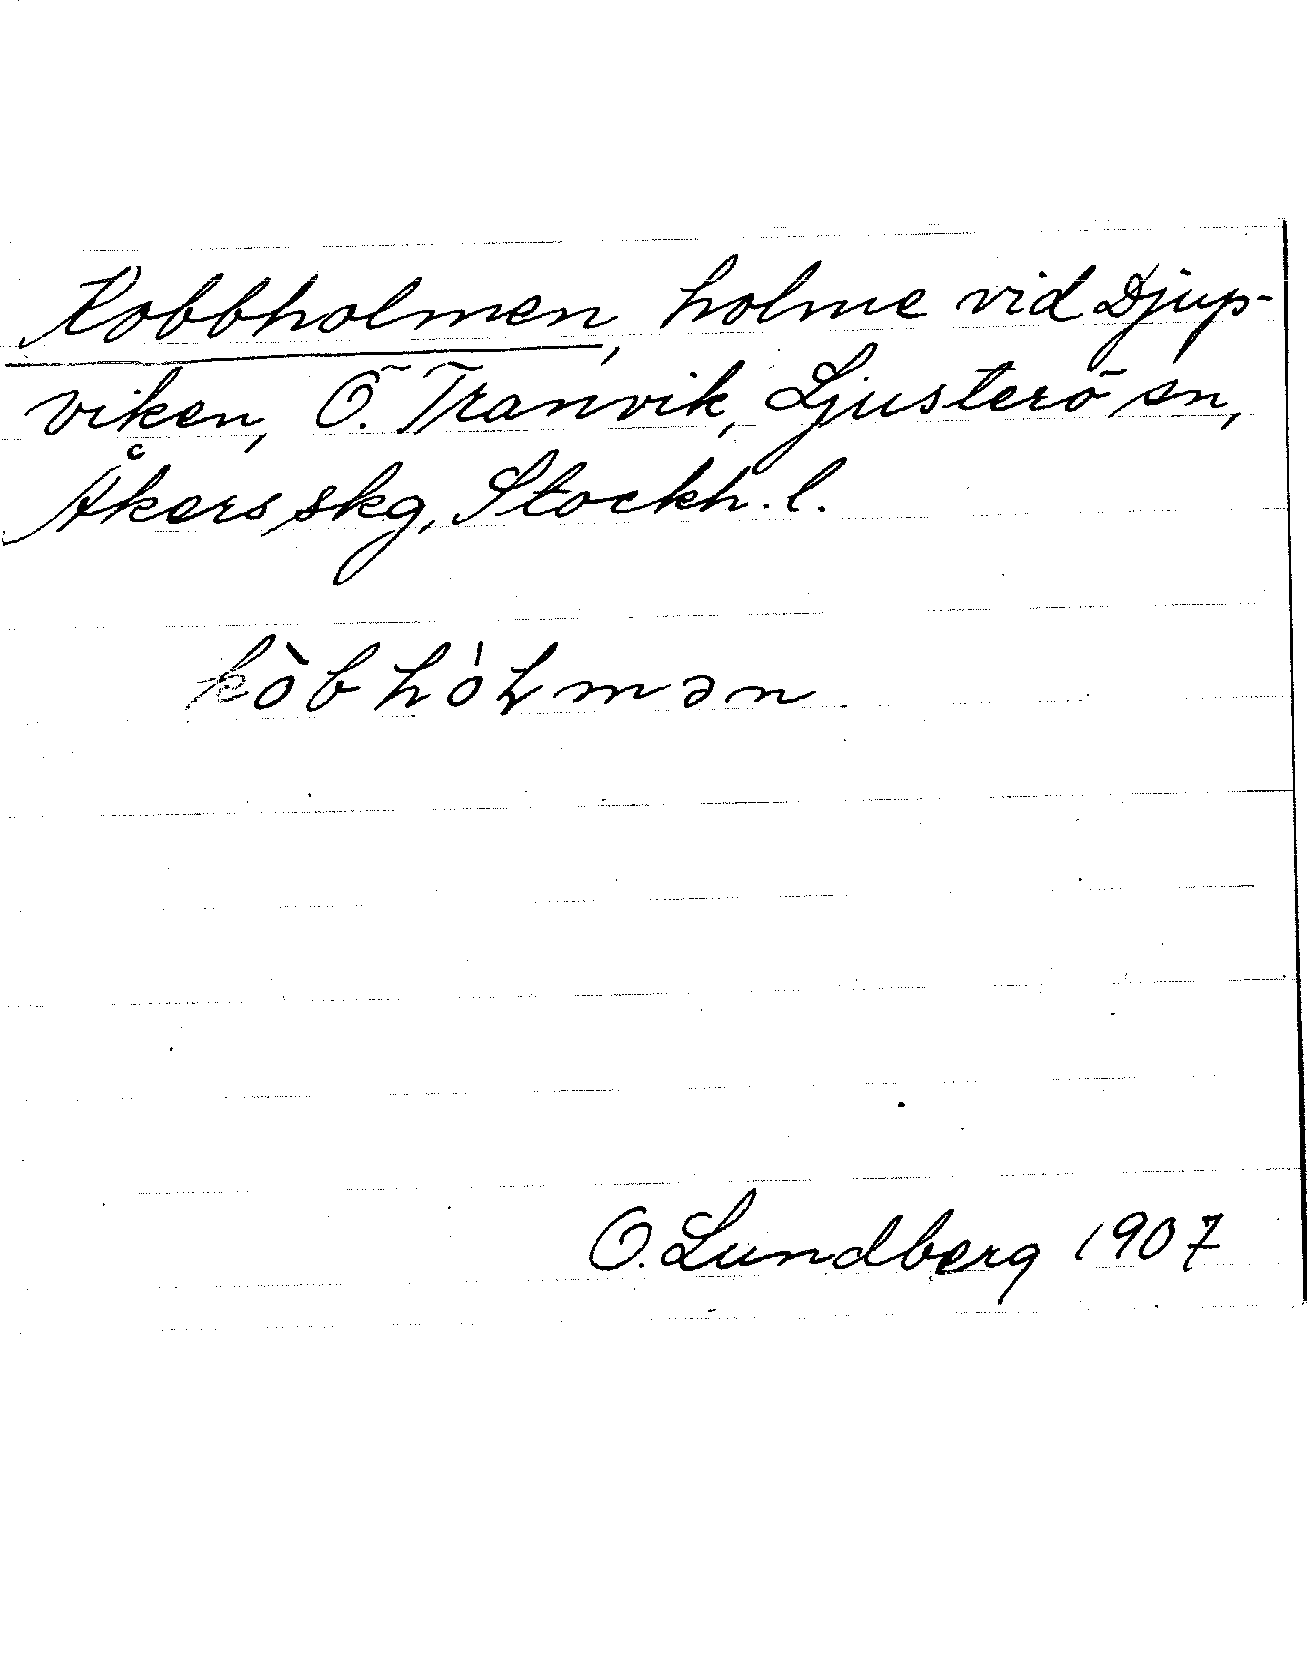 Kobbholmen, holme vid Djup-
viken, Ö. Tranvik, Ljusterö sn,
Åkers skg, Stockh. l.
kòbhóɫmən
O. Lundberg 1907